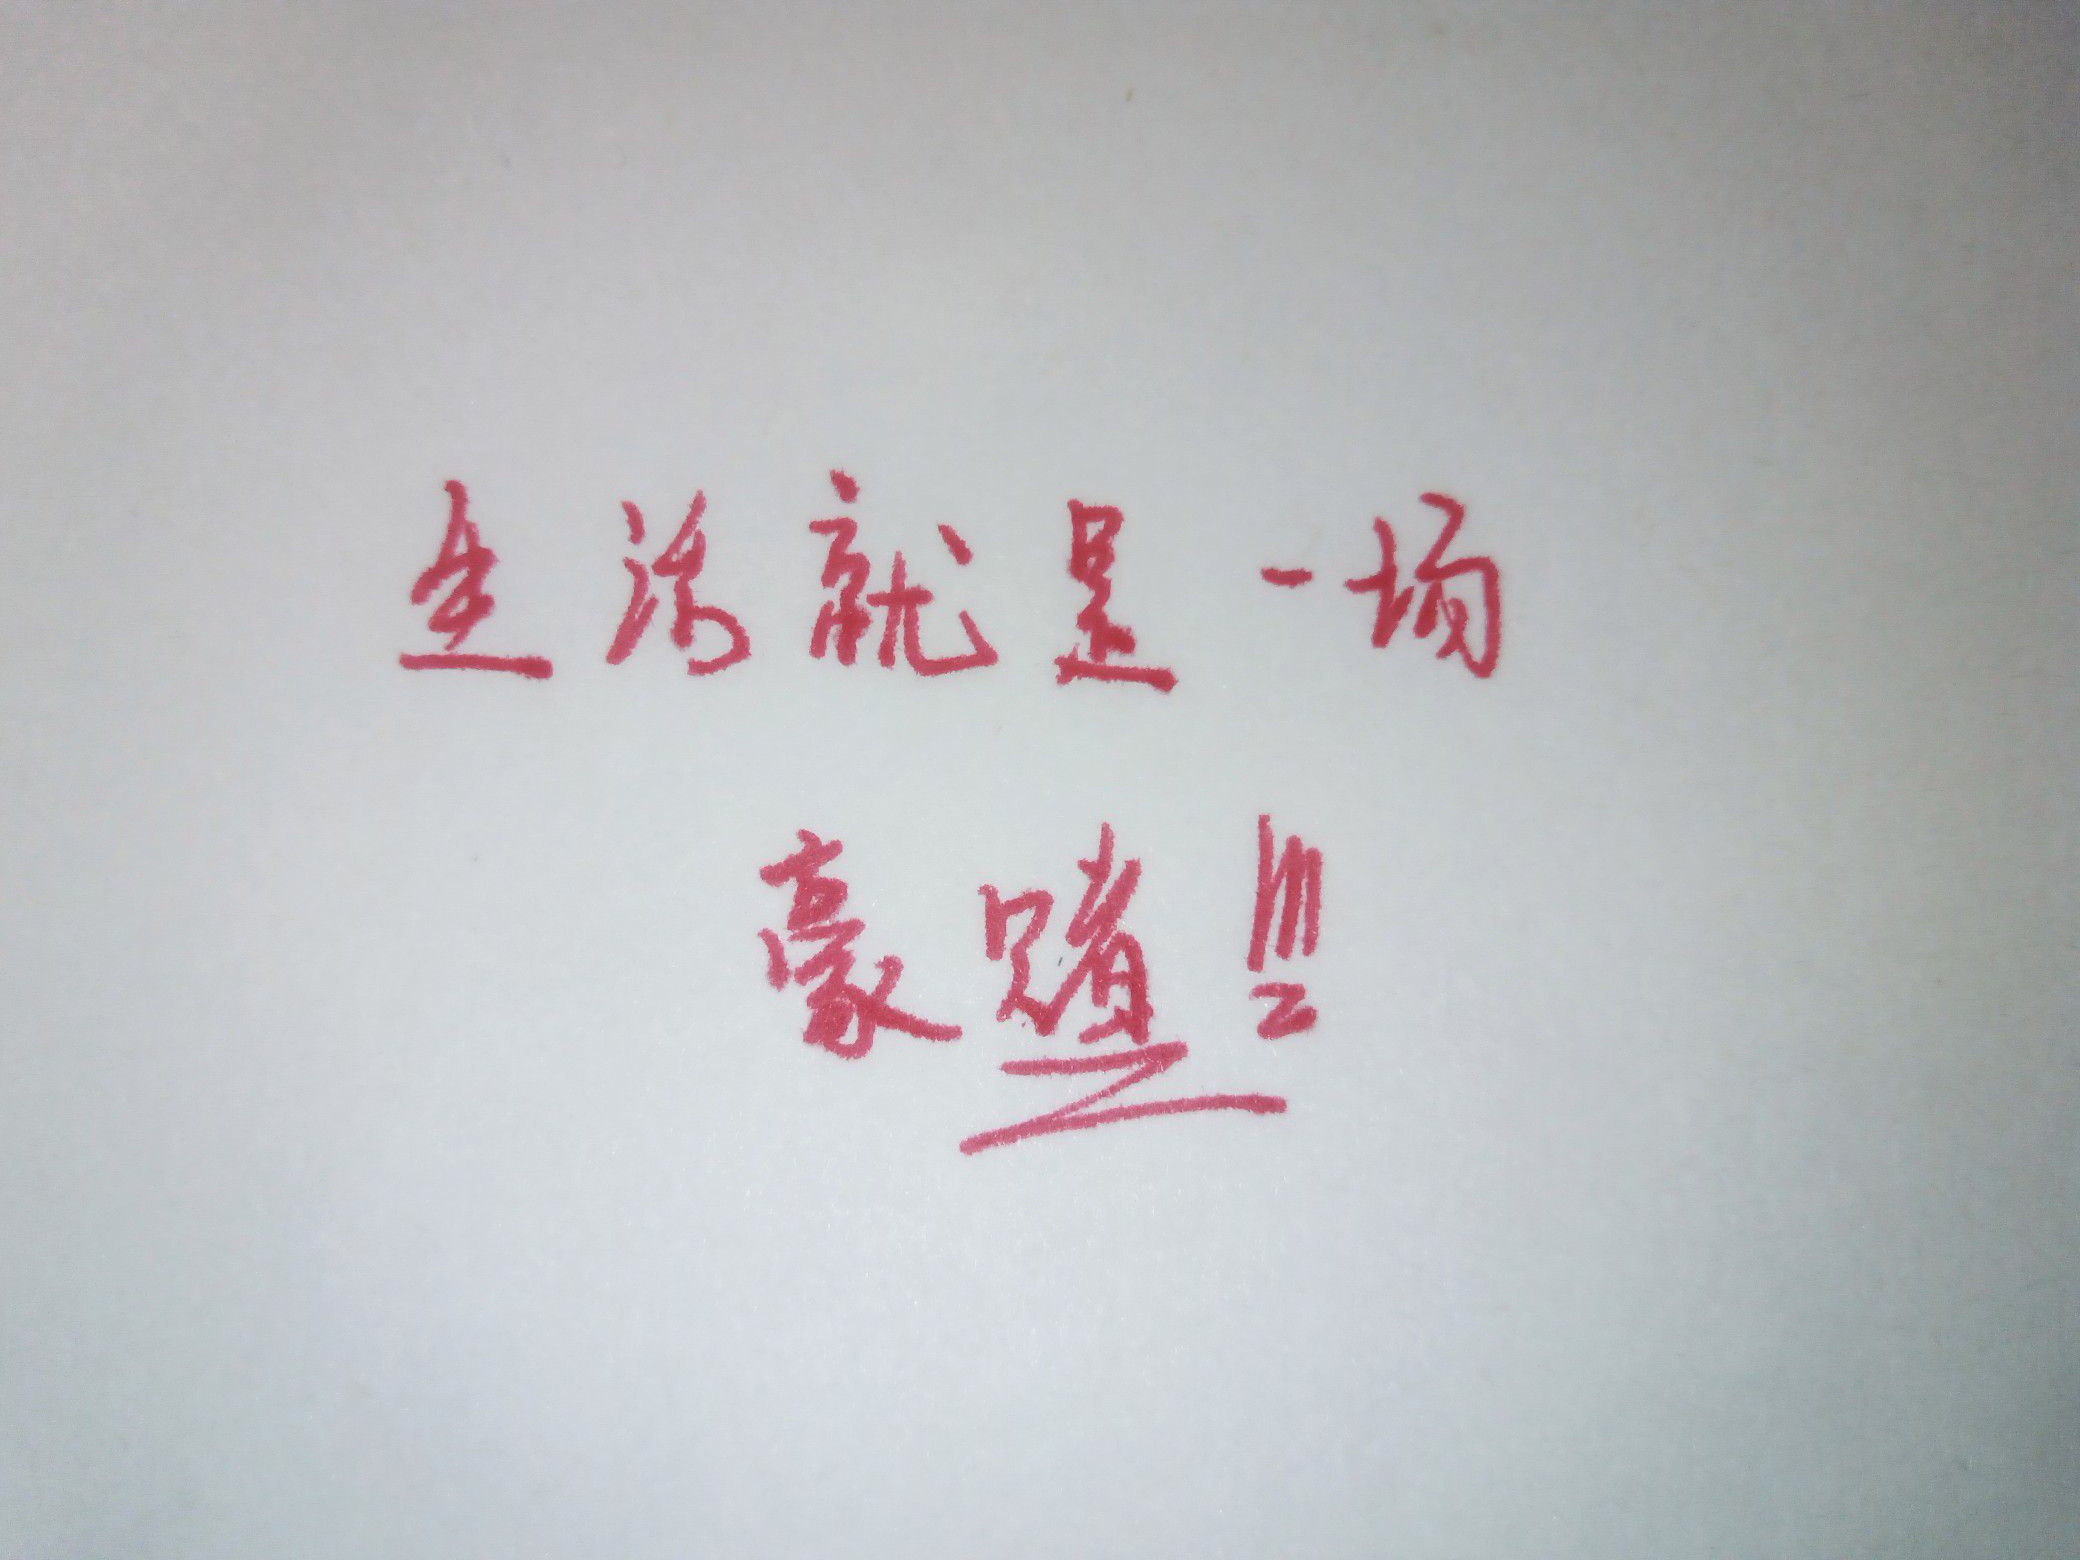 生活就是一场
豪赌!!!